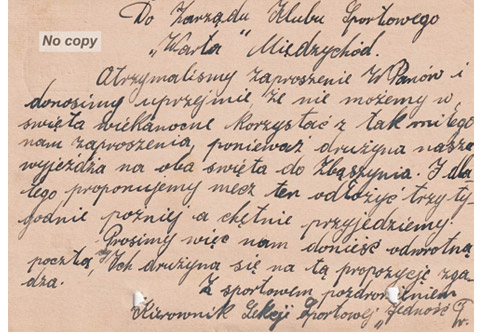 Do Zarządu Klubu Sportowego
No copy
„Warta" Międzychód.
Otrzymaliśmy zaproszenie WPanów i
donosimy uprzejmie, że nie możemy w
święta wielkanocne korzystać z tak miłego
nam zaproszenia, ponieważ drużyna nasza
wyjeżdża na oba święta do Zbąszynia. I dla
tego proponujemy mecz ten odłożyć trzy ty
godnie poźniej a chętnie przyjedziemy.
Prosimy więc nam donieść odwrotną
pocztą, Ich drużyna się na tą propozycję zga
dza.
Z sportowem pozdrowieniem
Kierownik Sekcji Sportowej „Jedność"